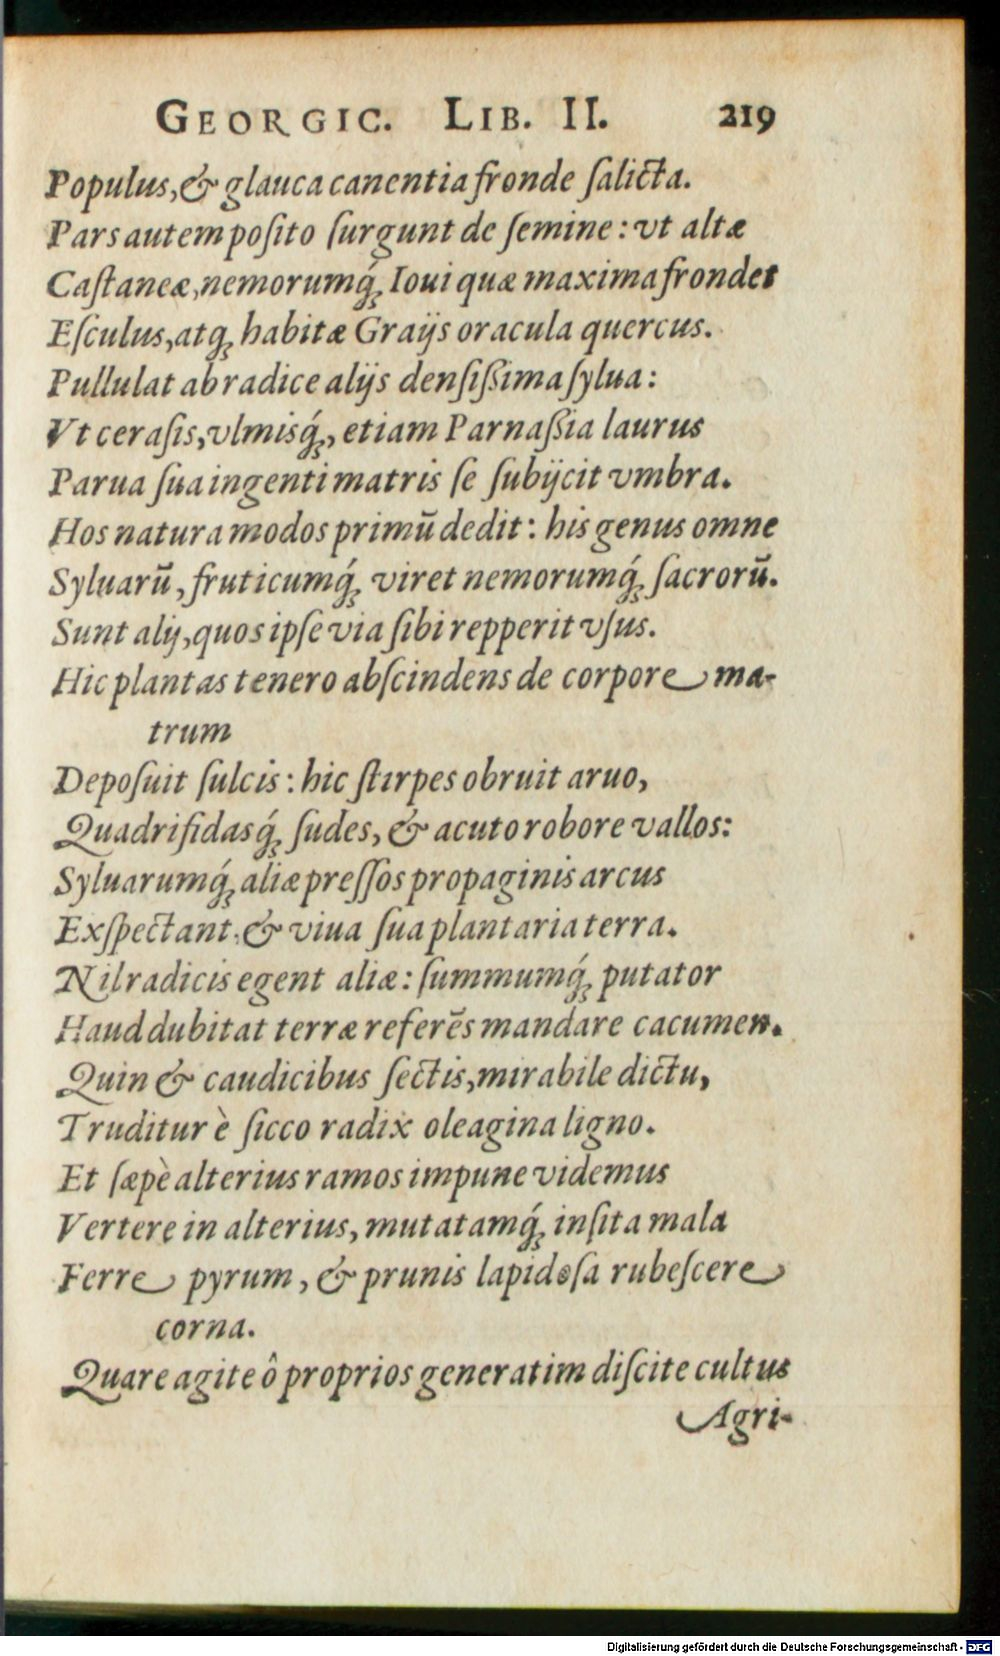 GEORGIC. LIB. II. 219
Populus, & glauca canentia fronde ſalicta.
Pars autem poſito ſurgunt de ſemine: vt altæ
Caſtaneæ, nemorumq́; Ioui quæ maxima frondet
Eſculus, atq; habitæ Graijs oracula quercus.
Pullulat ab radice alijs denſißima ſylua:
Vt ceraſis, vlmisq́;, etiam Parnaßia laurus
Parua ſua ingenti matris ſe ſubijcit vmbra.
Hos natura modos primū dedit: his genus omne
Syluarū, fruticumq́; viret nemorumq́; ſacrorū.
Sunt alij, quos ipſe via ſibi repperit vſus.
Hic plantas tenero abſcindens de corpore ma-
trum
Depoſuit ſulcis: hic ſtirpes obruit aruo,
Quadrifidasq́; ſudes, & acuto robore vallos:
Syluarumq́; aliæ preſſos propaginis arcus
Exſpectant, & viua ſua plantaria terra.
Nil radicis egent aliæ: ſummumq́; putator
Haud dubitat terræ referēs mandare cacumen.
Quin & caudicibus ſectis, mirabile dictu,
Truditur è ſicco radix oleagina ligno.
Et ſæpè alterius ramos impune videmus
Vertere in alterius, mutatamq́; inſita mala
Ferre pyrum, & prunis lapidoſa rubeſcere
corna.
Quare agite ô proprios generatim diſcite cultus
Agri-
Digitalisierung gefördert durch die Deutsche Forschungsgemeinschaft - DFG